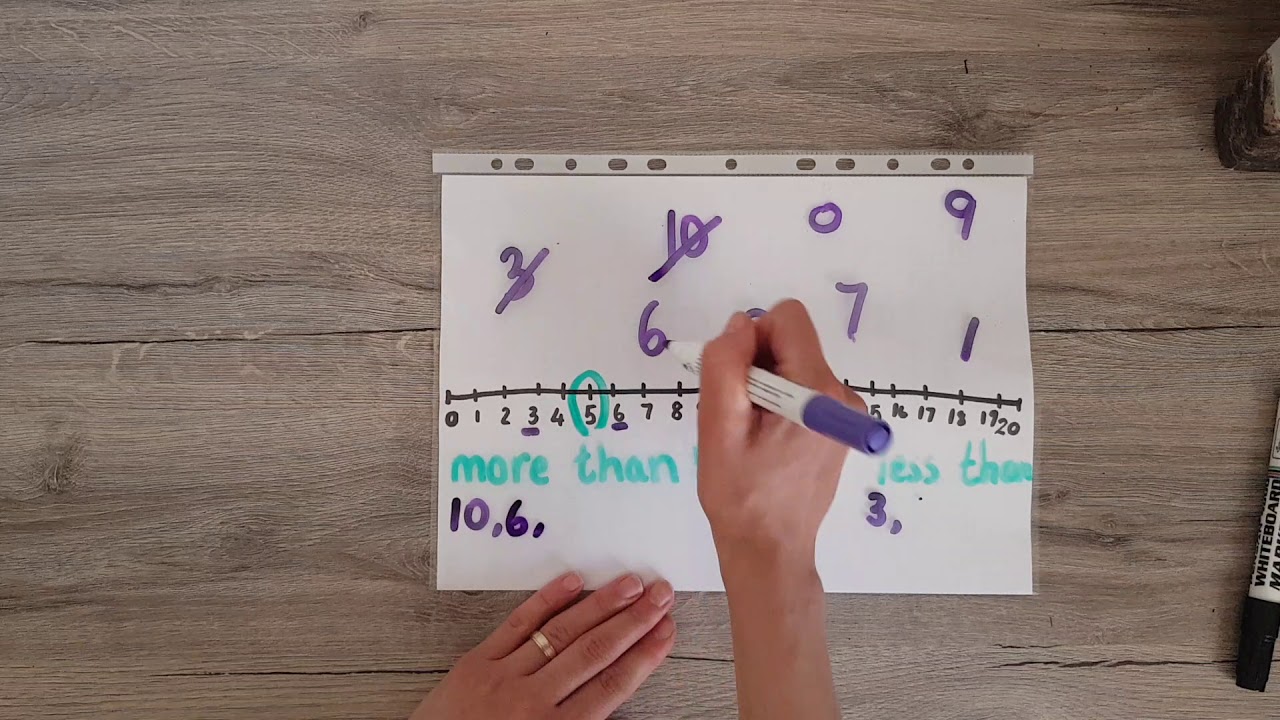 3 10 0 9
6 7 1
0 1 2 3 4 5 6 7 8 16 17 18 19 20
more than less than
10, 6, 3,
WHITEBOARD